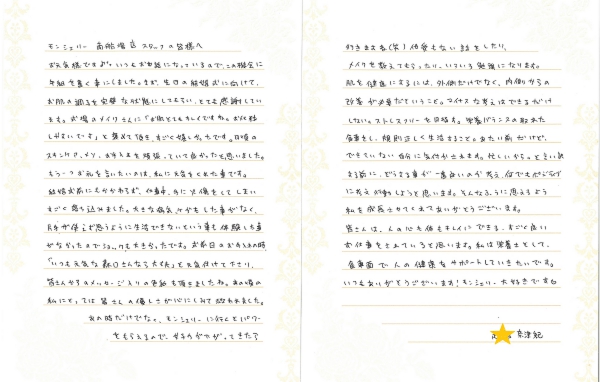 モンシェリー 高船場店 スタッフの皆様へ
お元気ですか。いつもお世話になっているので、この機会に
手紙を書く事にしました。まず、先日の結婚式に向けて、
お肌の調子を完璧な状態にしてもらい、とても感謝してい
ます。式場のメイクさんに「お肌とてもキレイですね。お化粧
しやすいです」と褒めて頂き、すごく嬉しかったです。日頃の
スキンケア、メソ、お手入れを頑張っていて良かったと思いました。
もう一つお礼を言いたいのは、私に元気をくれた事です。
結婚式前にもかかわらず、仕事中、手に火傷をしてしまい
すごく落ち込みました。大きな病気、ケガをした事がなく、
片手が使えず思うように生活できないという事も体験した事
がなかったのでショックも大きかったです。お式前日のお手入れの時
「いつも元気な 森口さんなら大丈夫」と元気付けて下さり、
皆さんからのメッセージ入りの色紙も頂きましたね。あの頃の
私にとっては皆さんの優しさが心にしみて救われました。
あの時だけでなく、モンシェリーに行くとパワー
をもらえるので
好きますね(笑) 何気ない話をしたり、
メイクを教えてもらったり、いろいろ勉強になります。
肌を健康にするには、外側だけでなく、内側からの
改善が必要だということ。マイナスな考えはできるだけ
しない。ストレスフリーを目指す。栄養バランスの取れた
食事をし、規則正しく生活すること。あたり前だけど、
できていない自分に気付かされます。忙しいから。と言い訳
する前に、どうする事が一番良いのか考え、何でもポジティブ
に考え行動しようと思います。そんなふうに思えるよう
私を成長させてくれてありがとうございます。
皆さんは、人の心も体もキレイにできる、すごく良い
お仕事をされていると思います。私は栄養士として、
食事面で人の健康をサポートしていきたいです。
いつもありがとうございます！モンシェリー大好きです
奈津紀